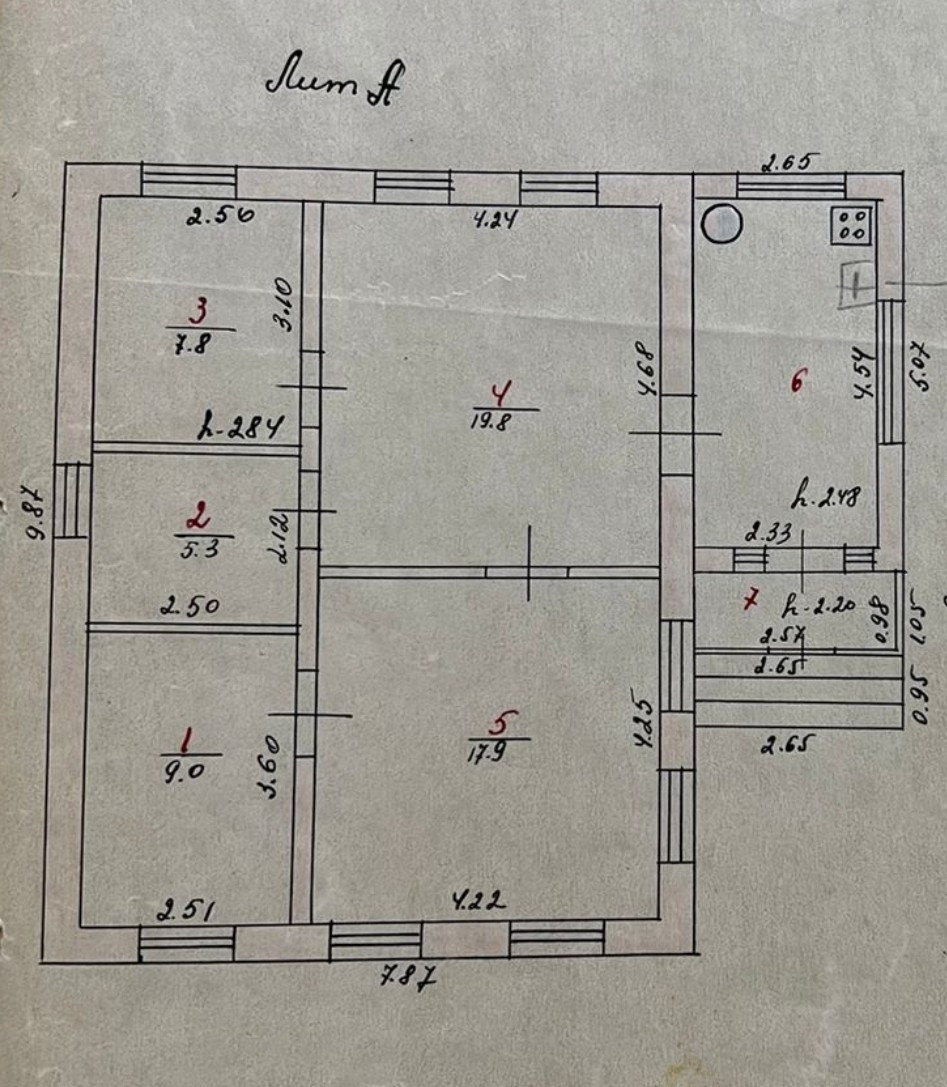 Лит А
2.65
2.50
4.24
3.10
3
7.8
4
19.8
4.68
6
4.54
5.07
h-284
h.2.48
9.87
2
5.3
2.12
2.33
2.50
7
h-2.20
0.98
1.05
2.57
2.65
0.95
1
9.0
3.60
5
17.9
4.25
2.65
2.51
4.22
7.87